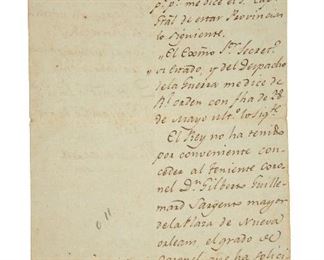 p.r p.r me dice el S. Cap.n
Gral de estas Provincias
lo siguiente.
"El Exmo S.or Secret.o
"de Estado, y del Despacho
de la Guerra me dice de
Rl orden con fha de 28
de Mayo ult.o lo sig.te
El Rey no ha tenido
por conveniente con-
ceder al Teniente Coro-
nel D.n Gilberto Guille-
mard Sargento mayor
de la Plaza de Nueva
Orleans, el grado de
Coronel que ha solici